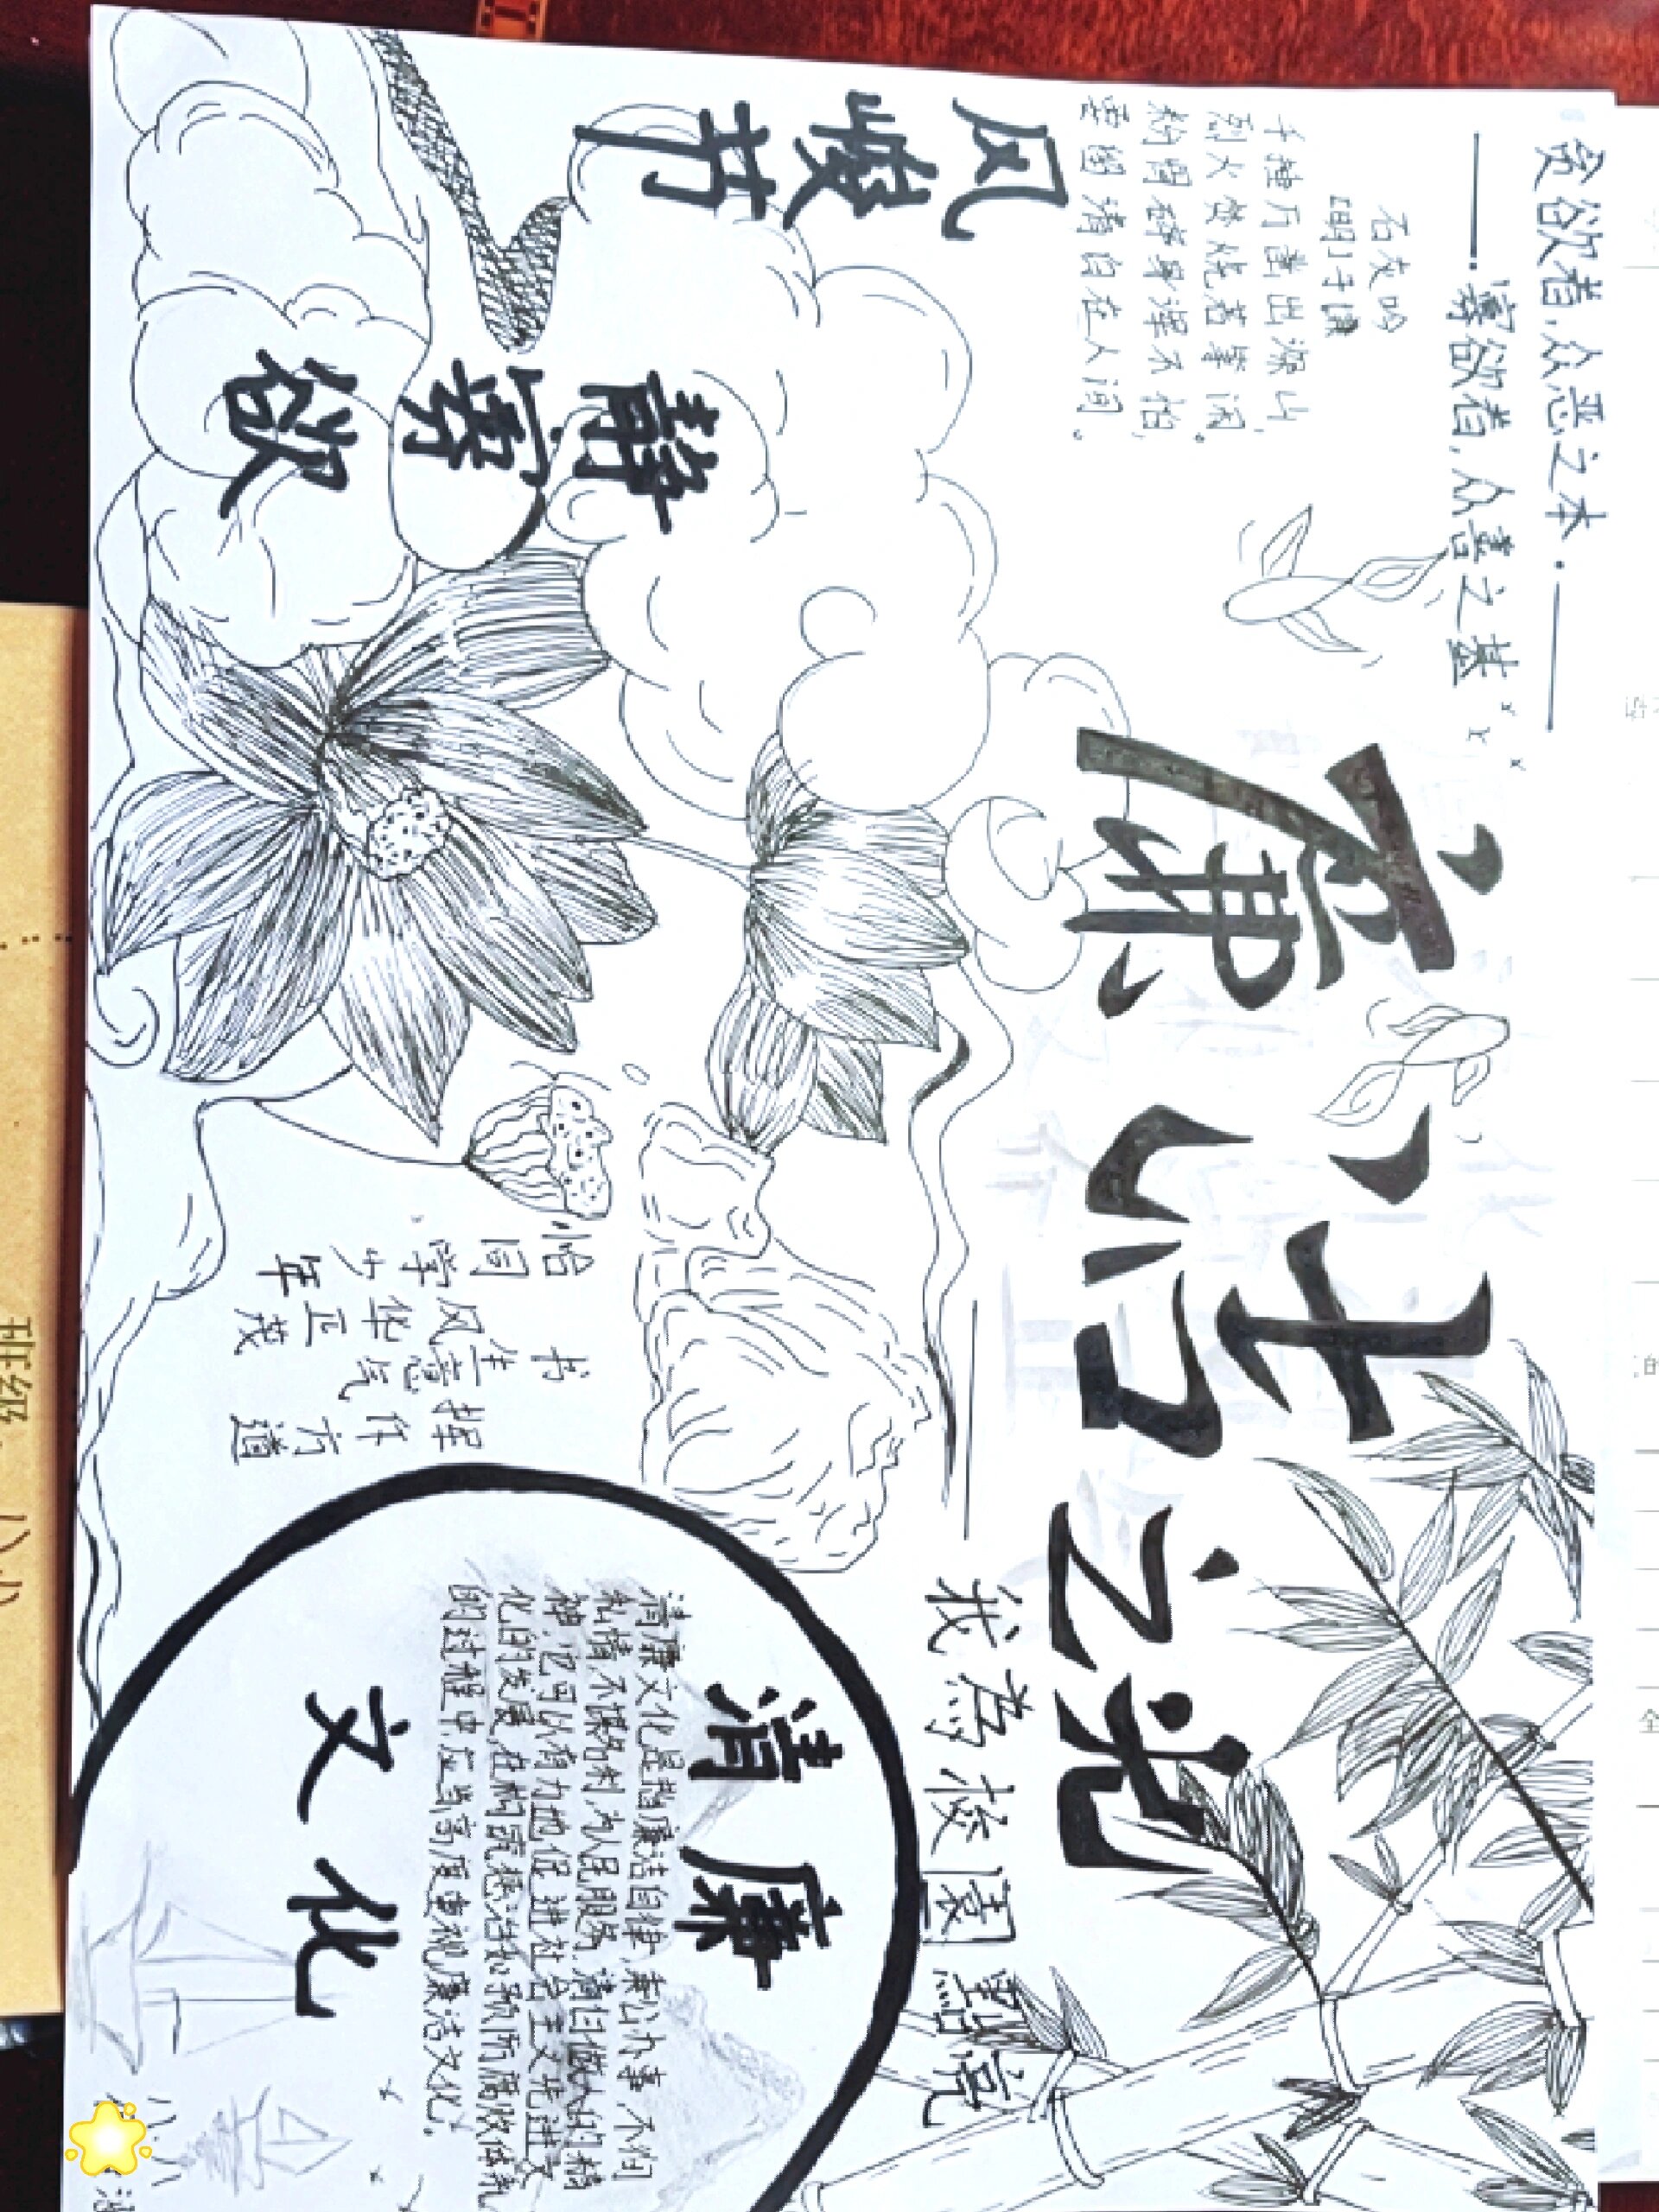 贪欲者,众恶之本·
·寡欲者,众善之基
石灰吟
[明]于谦
千捶万凿出深山,
烈火焚烧若等闲。
粉骨碎身浑不怕,
要留清白在人间。
廉洁之光
我為校園點亮
风峻节
静寡欲
恰同学少年
风华正茂
书生意气
挥
作方道
清廉
文化
清廉文化是指廉洁自律、秉公办事、不徇
私情、不谋名利、为人民服务、清白做人的精
神,也可以有力地促进社会主义先进文
化的发展,在构筑惩治和预防腐败体系
的过程中应当高度重视廉洁文化。
班级:八八
八、八